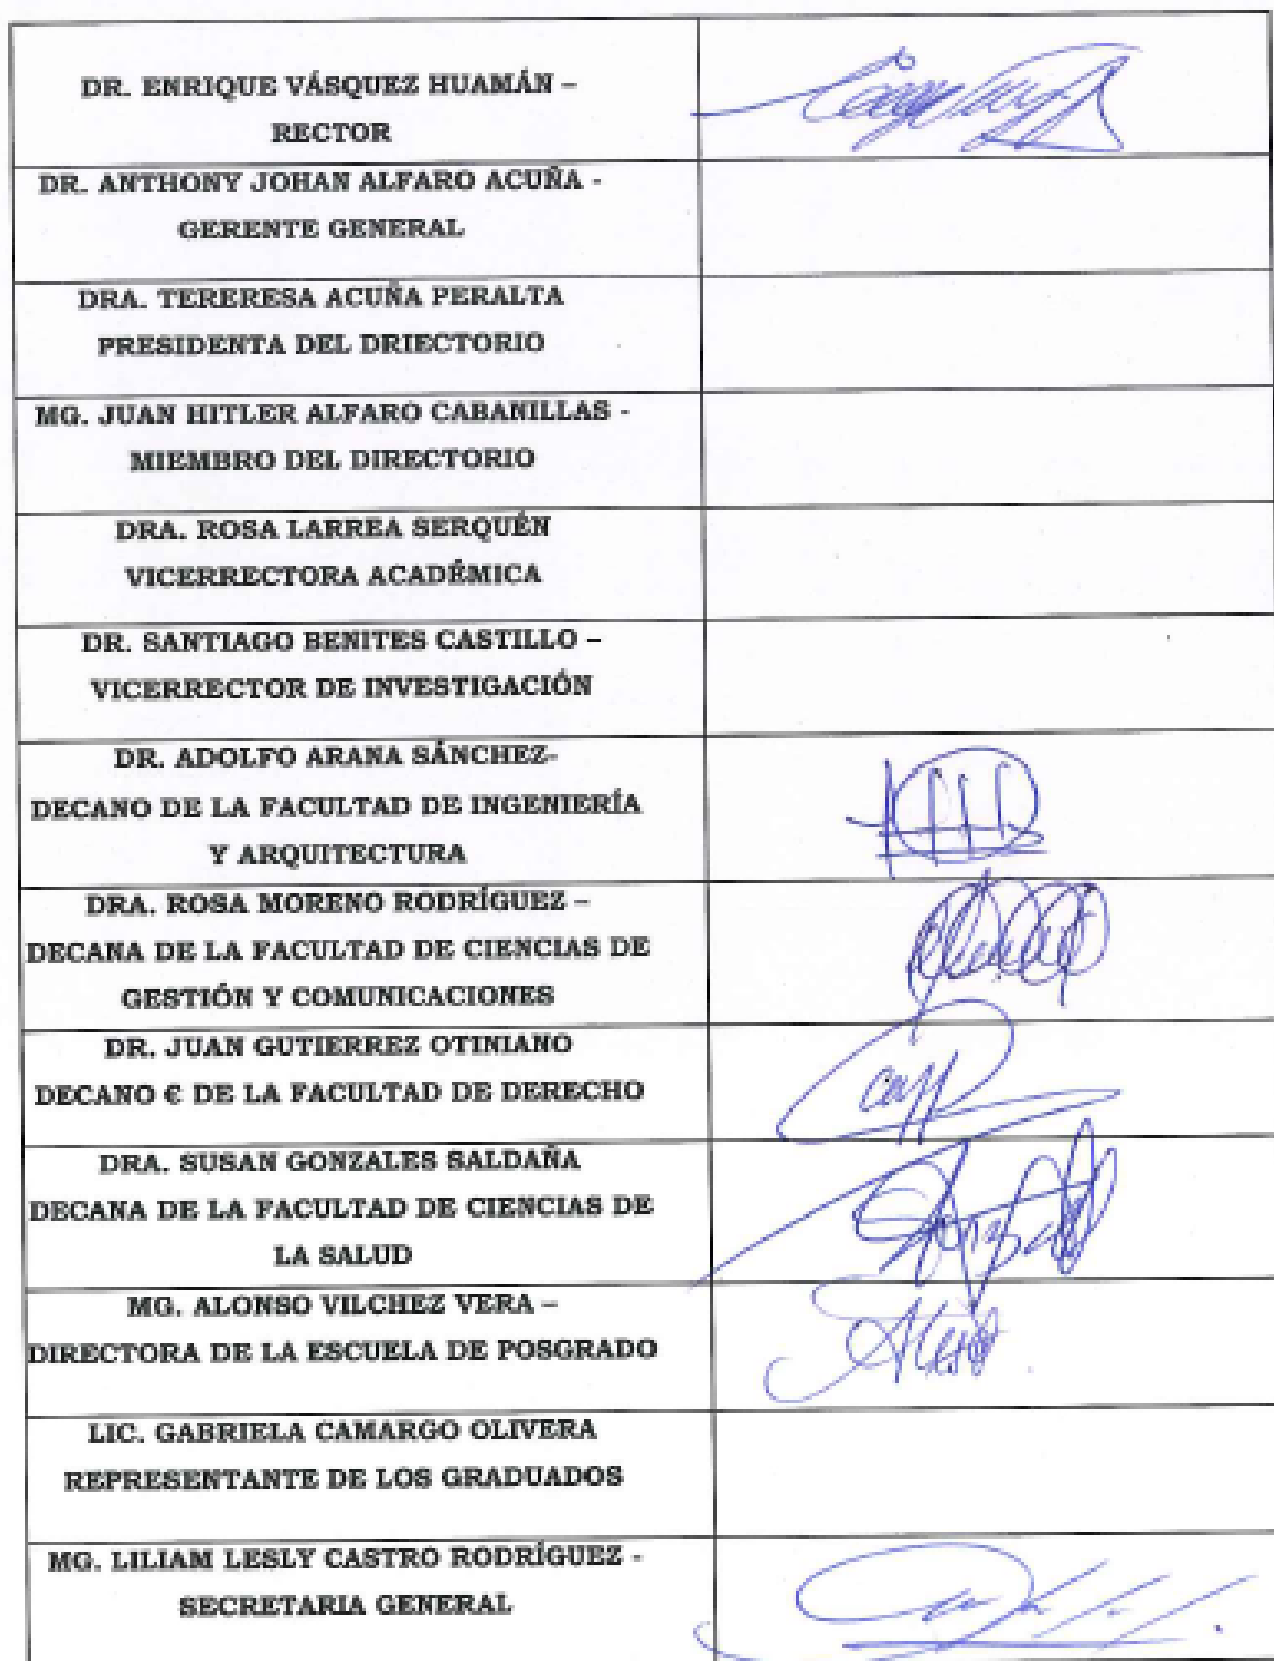 DR. ENRIQUE VÁSQUEZ HUAMÁN –
RECTOR
DR. ANTHONY JOHAN ALFARO ACUÑA -
GERENTE GENERAL
DRA. TERERESA ACUÑA PERALTA
PRESIDENTA DEL DRIECTORIO
MG. JUAN HITLER ALFARO CABANILLAS -
MIEMBRO DEL DIRECTORIO
DRA. ROSA LARREA SERQUÉN
VICERRECTORA ACADÉMICA
DR. SANTIAGO BENITES CASTILLO –
VICERRECTOR DE INVESTIGACIÓN
DR. ADOLFO ARANA SÁNCHEZ-
DECANO DE LA FACULTAD DE INGENIERÍA
Y ARQUITECTURA
DRA. ROSA MORENO RODRÍGUEZ –
DECANA DE LA FACULTAD DE CIENCIAS DE
GESTIÓN Y COMUNICACIONES
DR. JUAN GUTIERREZ OTINIANO
DECANO € DE LA FACULTAD DE DERECHO
DRA. SUSAN GONZALES SALDAÑA
DECANA DE LA FACULTAD DE CIENCIAS DE
LA SALUD
MG. ALONSO VILCHEZ VERA –
DIRECTORA DE LA ESCUELA DE POSGRADO
LIC. GABRIELA CAMARGO OLIVERA
REPRESENTANTE DE LOS GRADUADOS
MG. LILIAM LESLY CASTRO RODRÍGUEZ -
SECRETARIA GENERAL